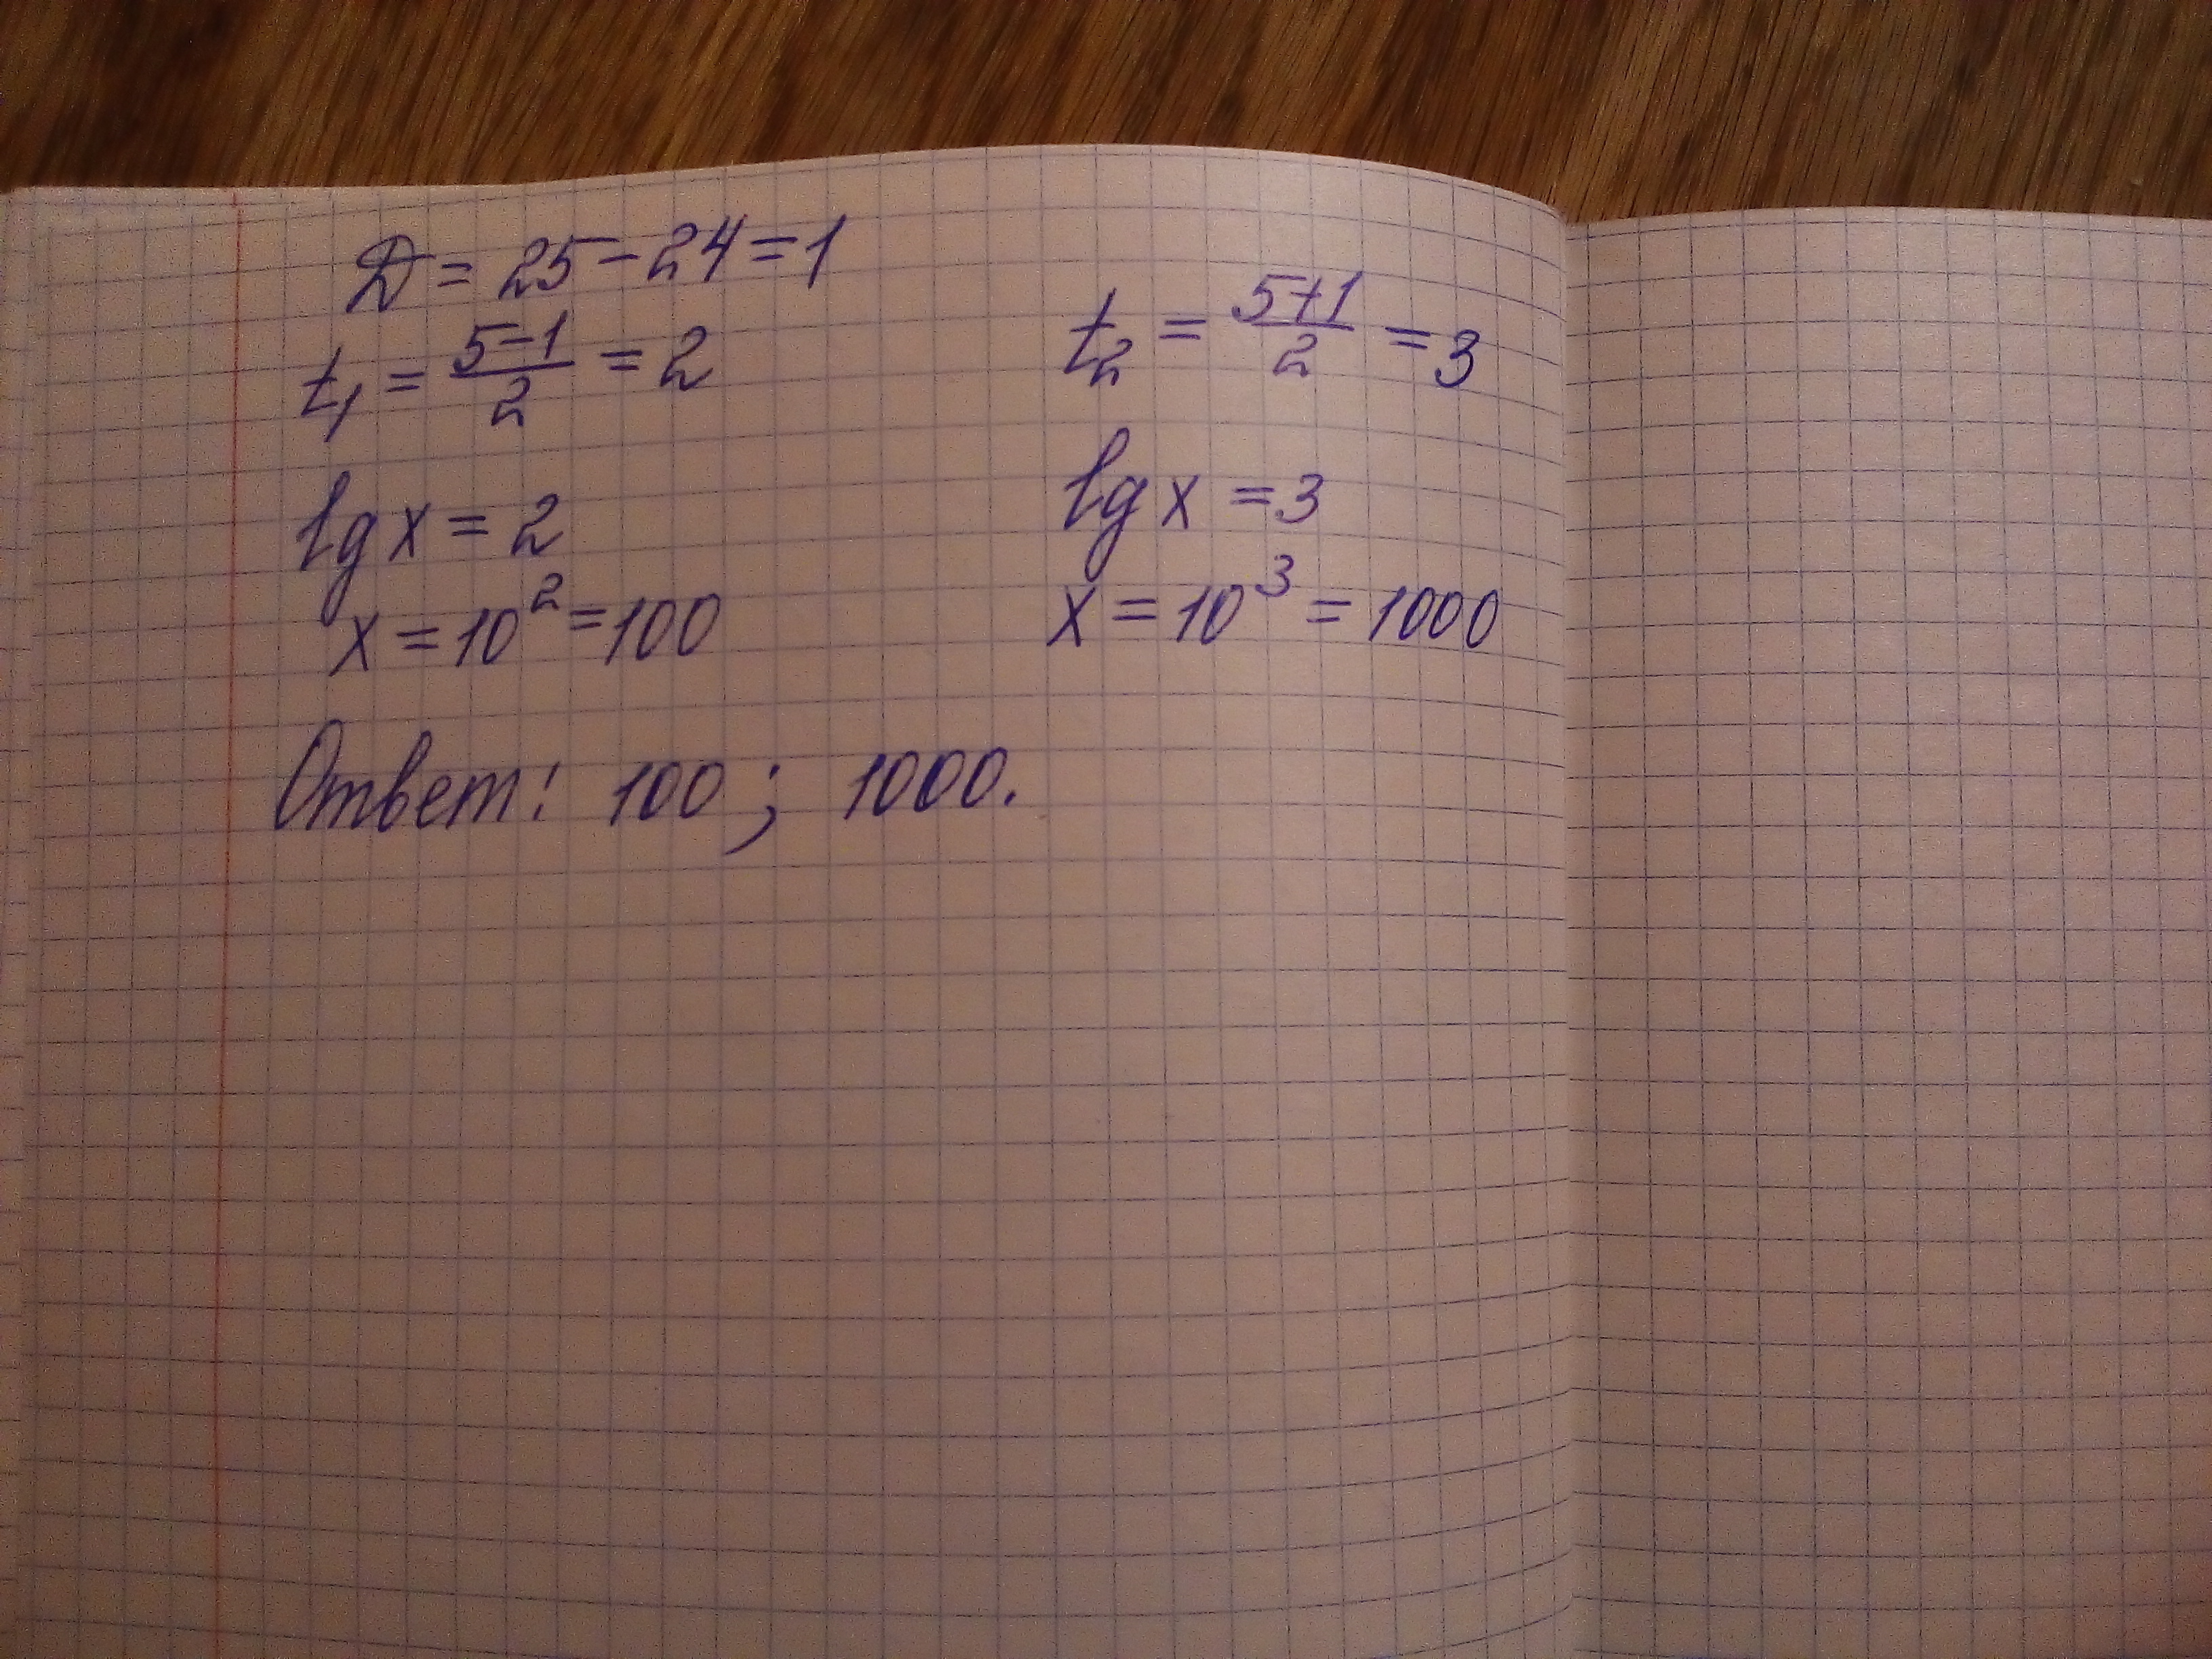 D = 25 - 24 = 1
t₁ = (5-1)/2 = 2
t₂ = (5+1)/2 = 3
lg x = 2
lg x = 3
x = 10² = 100
x = 10³ = 1000
Ответ: 100; 1000.